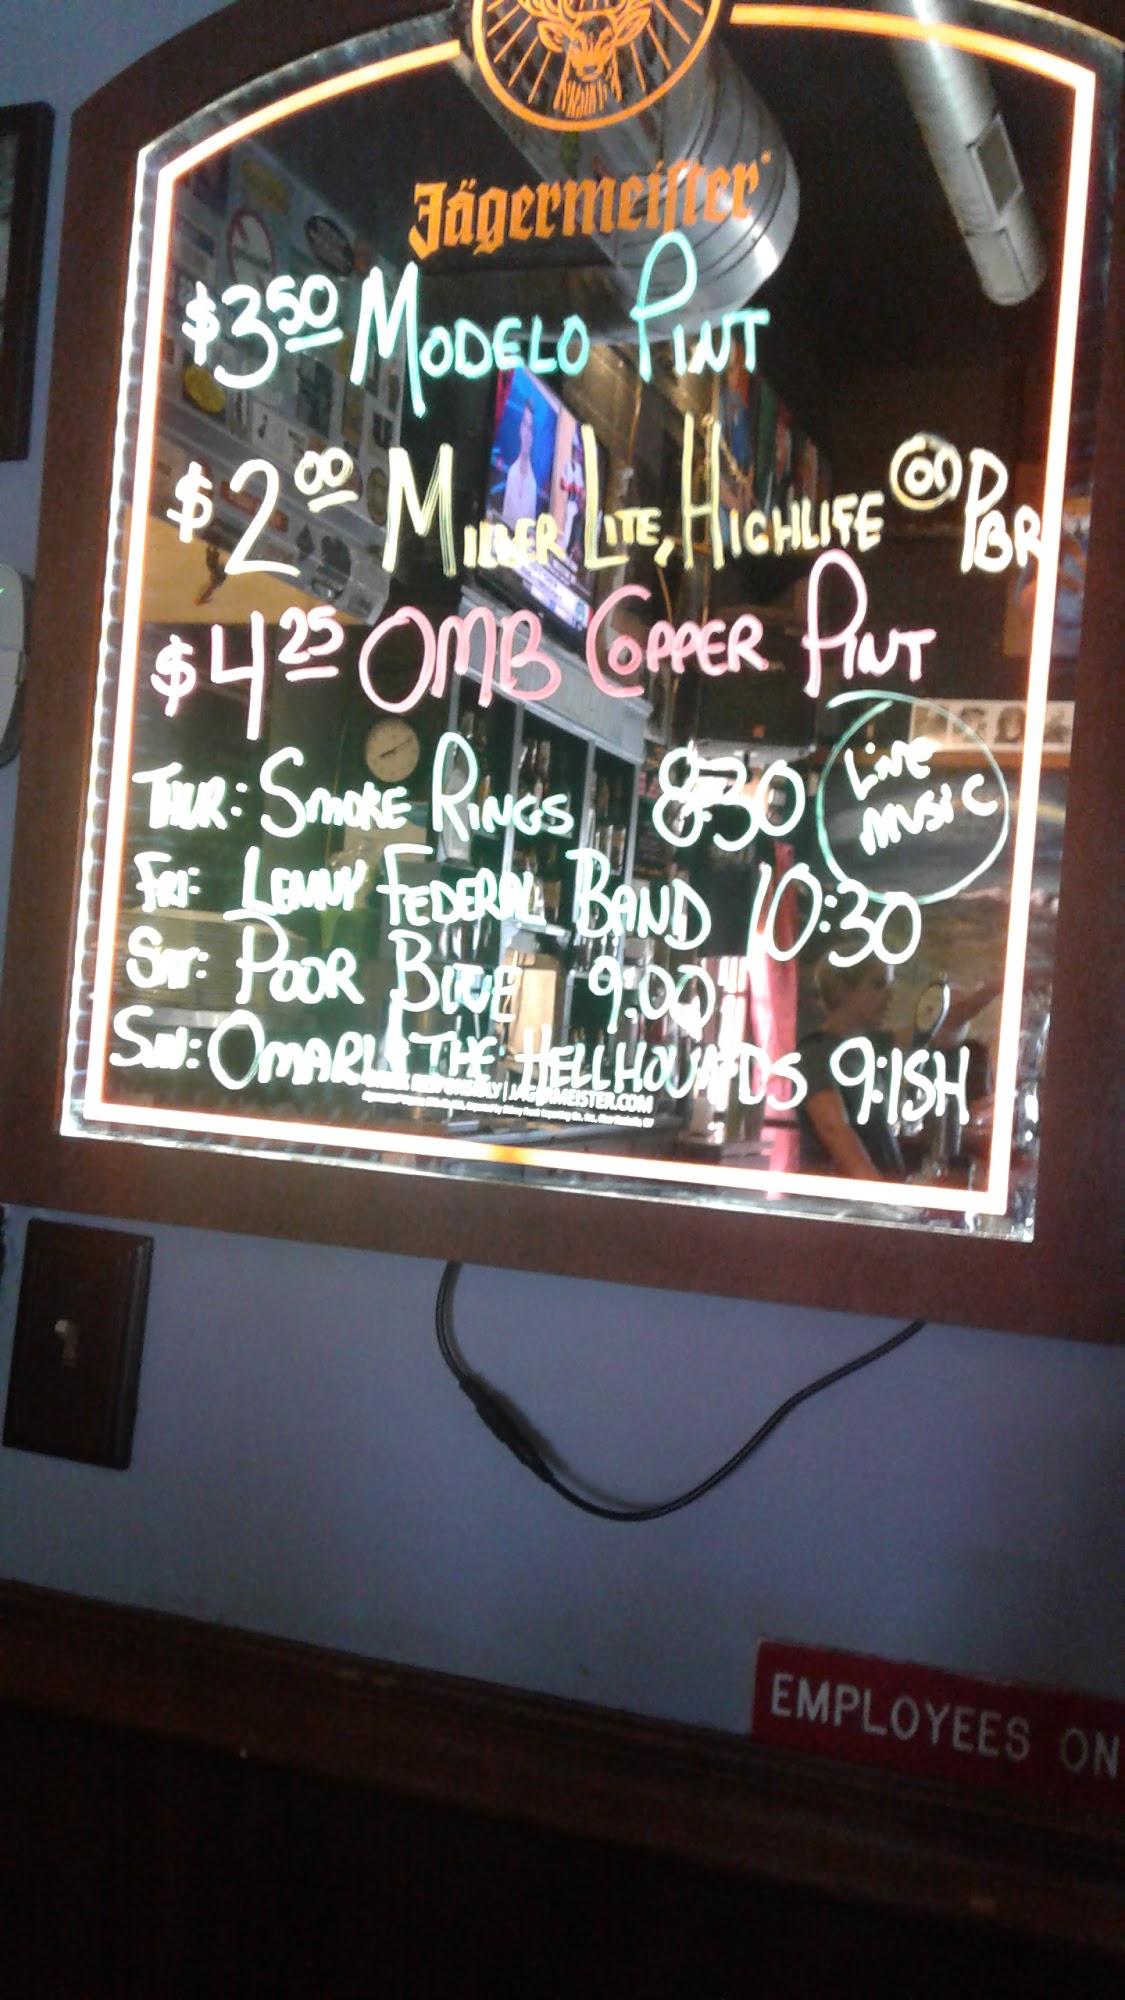 Jägermeister
$3.50 MODELO PINT
$2.00 MILLER LITE, HIGHLIFE OR PBR
$4.25 OMB COPPER PINT
LIVE
MUSIC
THUR: SMOKE RINGS 8:30
FRI: LENNY FEDERAL BAND 10:30
SAT: POOR BLUE 9:00
SUN: OMARI & THE HELLHOUNDS 9:ISH
RESPONSIBLY | JAGERMEISTER.COM
EMPLOYEES ON